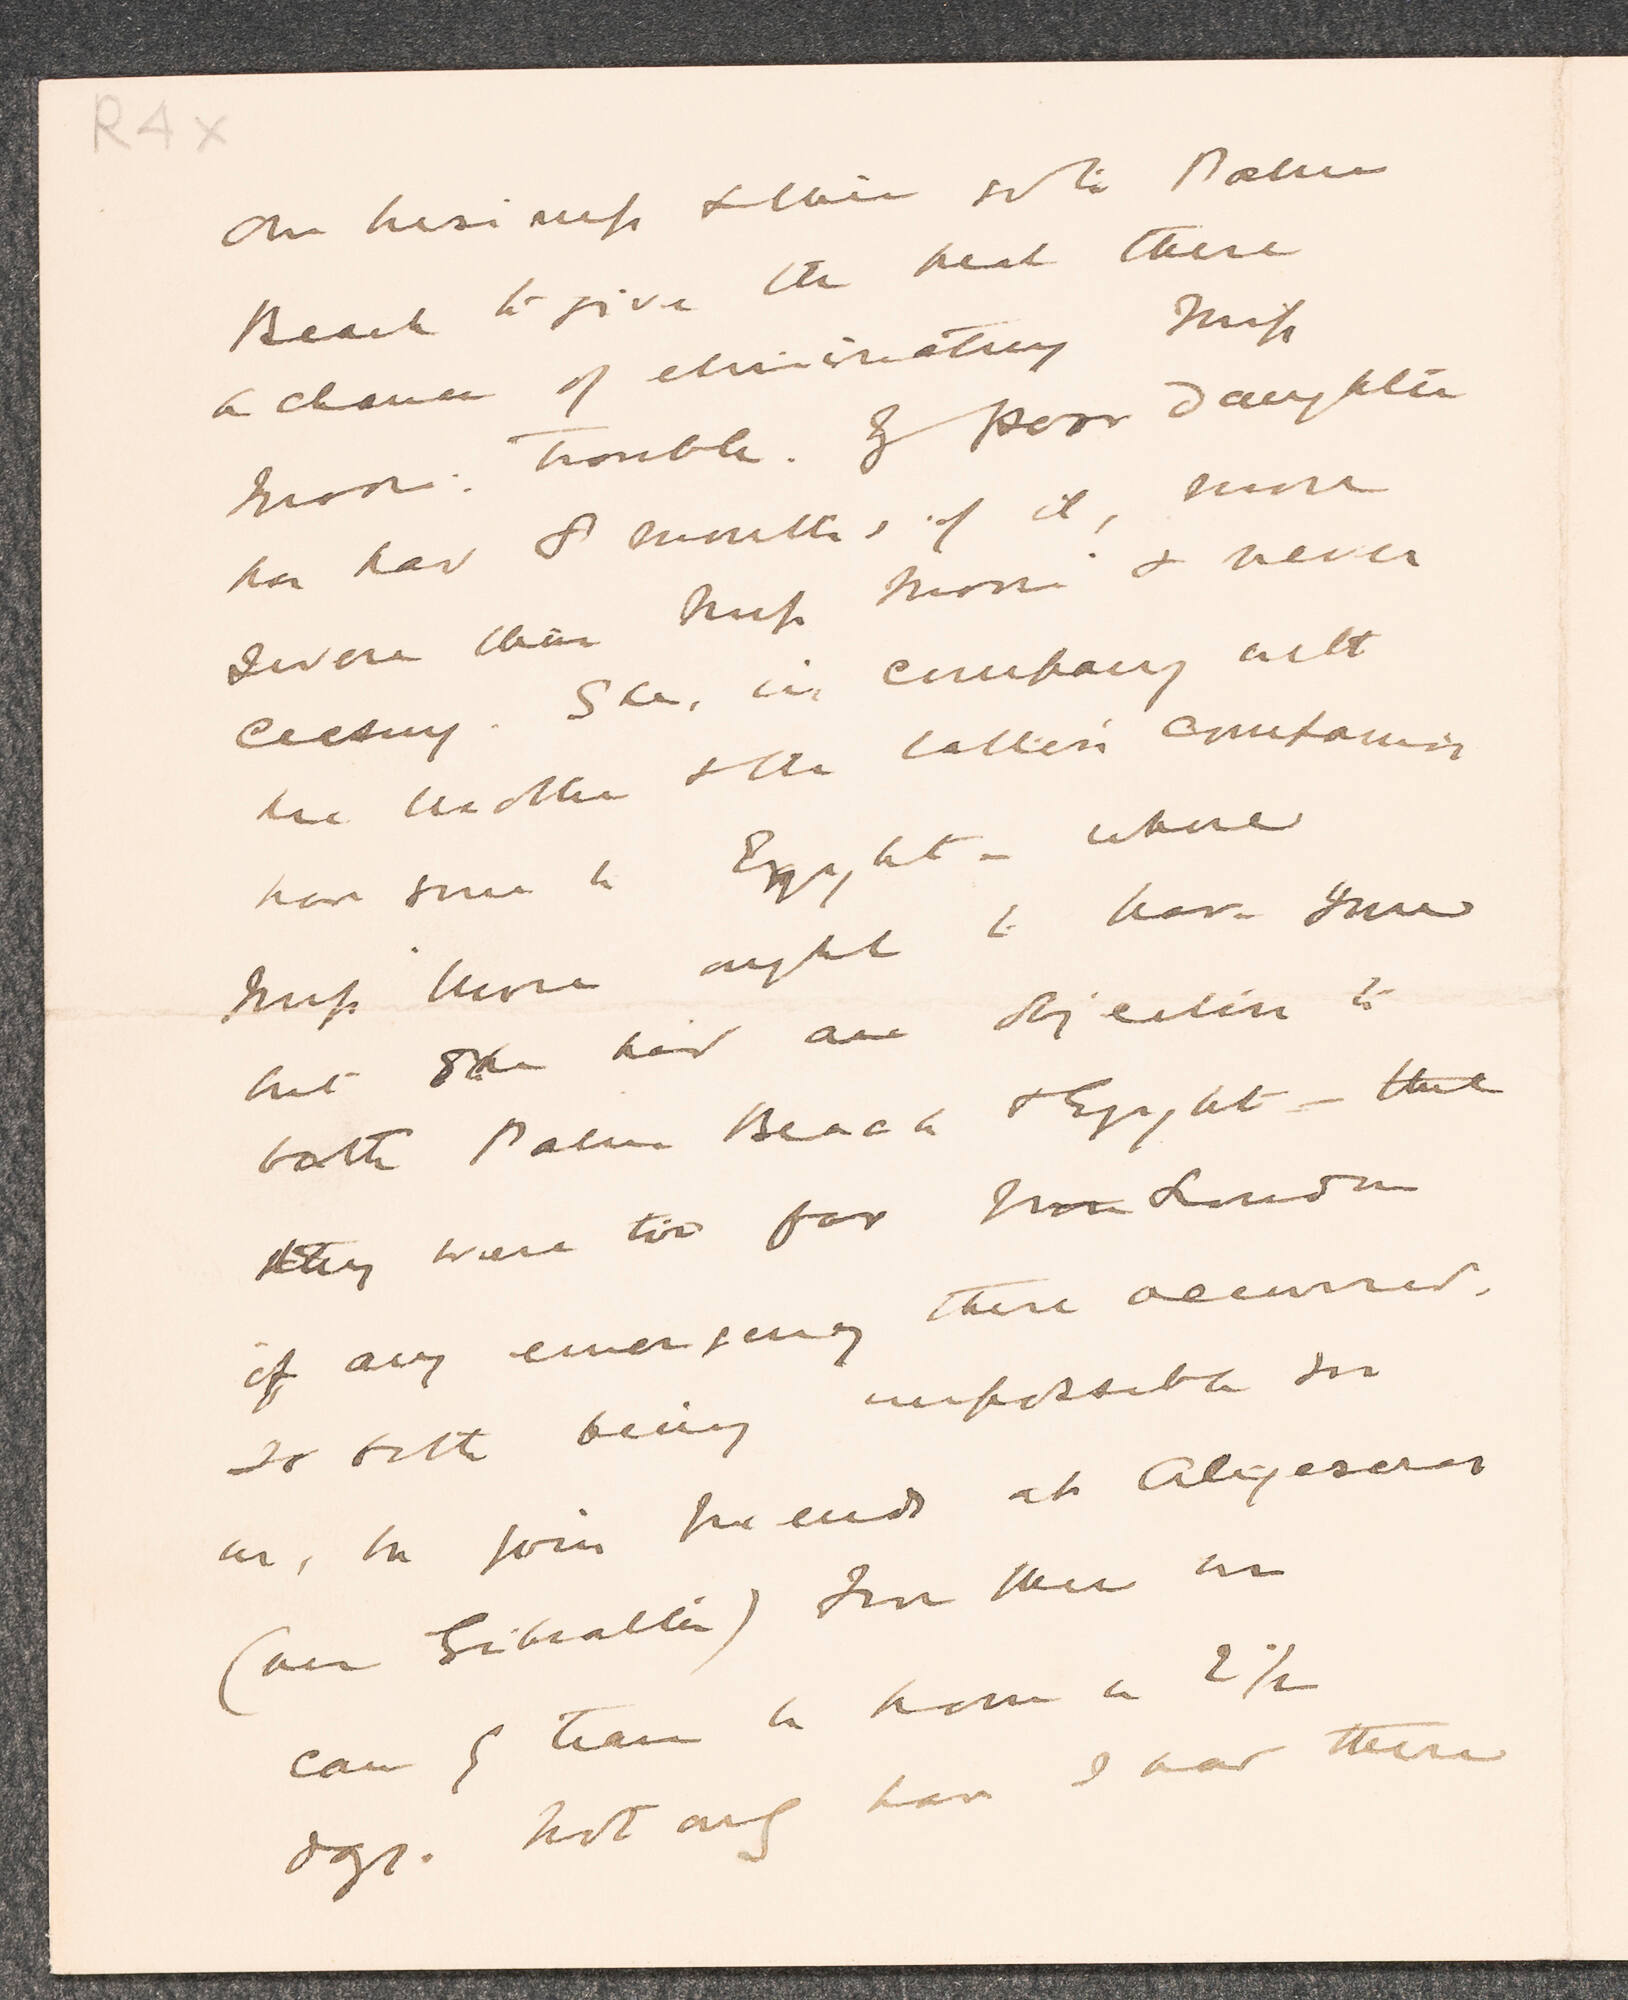 R4x
on business & then go to Palm
Beach to give the heat there
a chance of eliminating Miss
Moore's trouble. My poor daughter
has had 8 months of it, more
severe than Miss Moore's & never
ceasing. She, in company with
her brother & the latter's companion
have gone to Egypt - where
Miss Moore ought to have gone
but she had an objection to
both Palm Beach & Egypt - that
they were too far from London
if any emergency there occurred.
So both being impossible for
us, to join friends at Algeseras
(near Gibraltar) from there we
can train to home in 2 1/2
dys. Not only have I had there